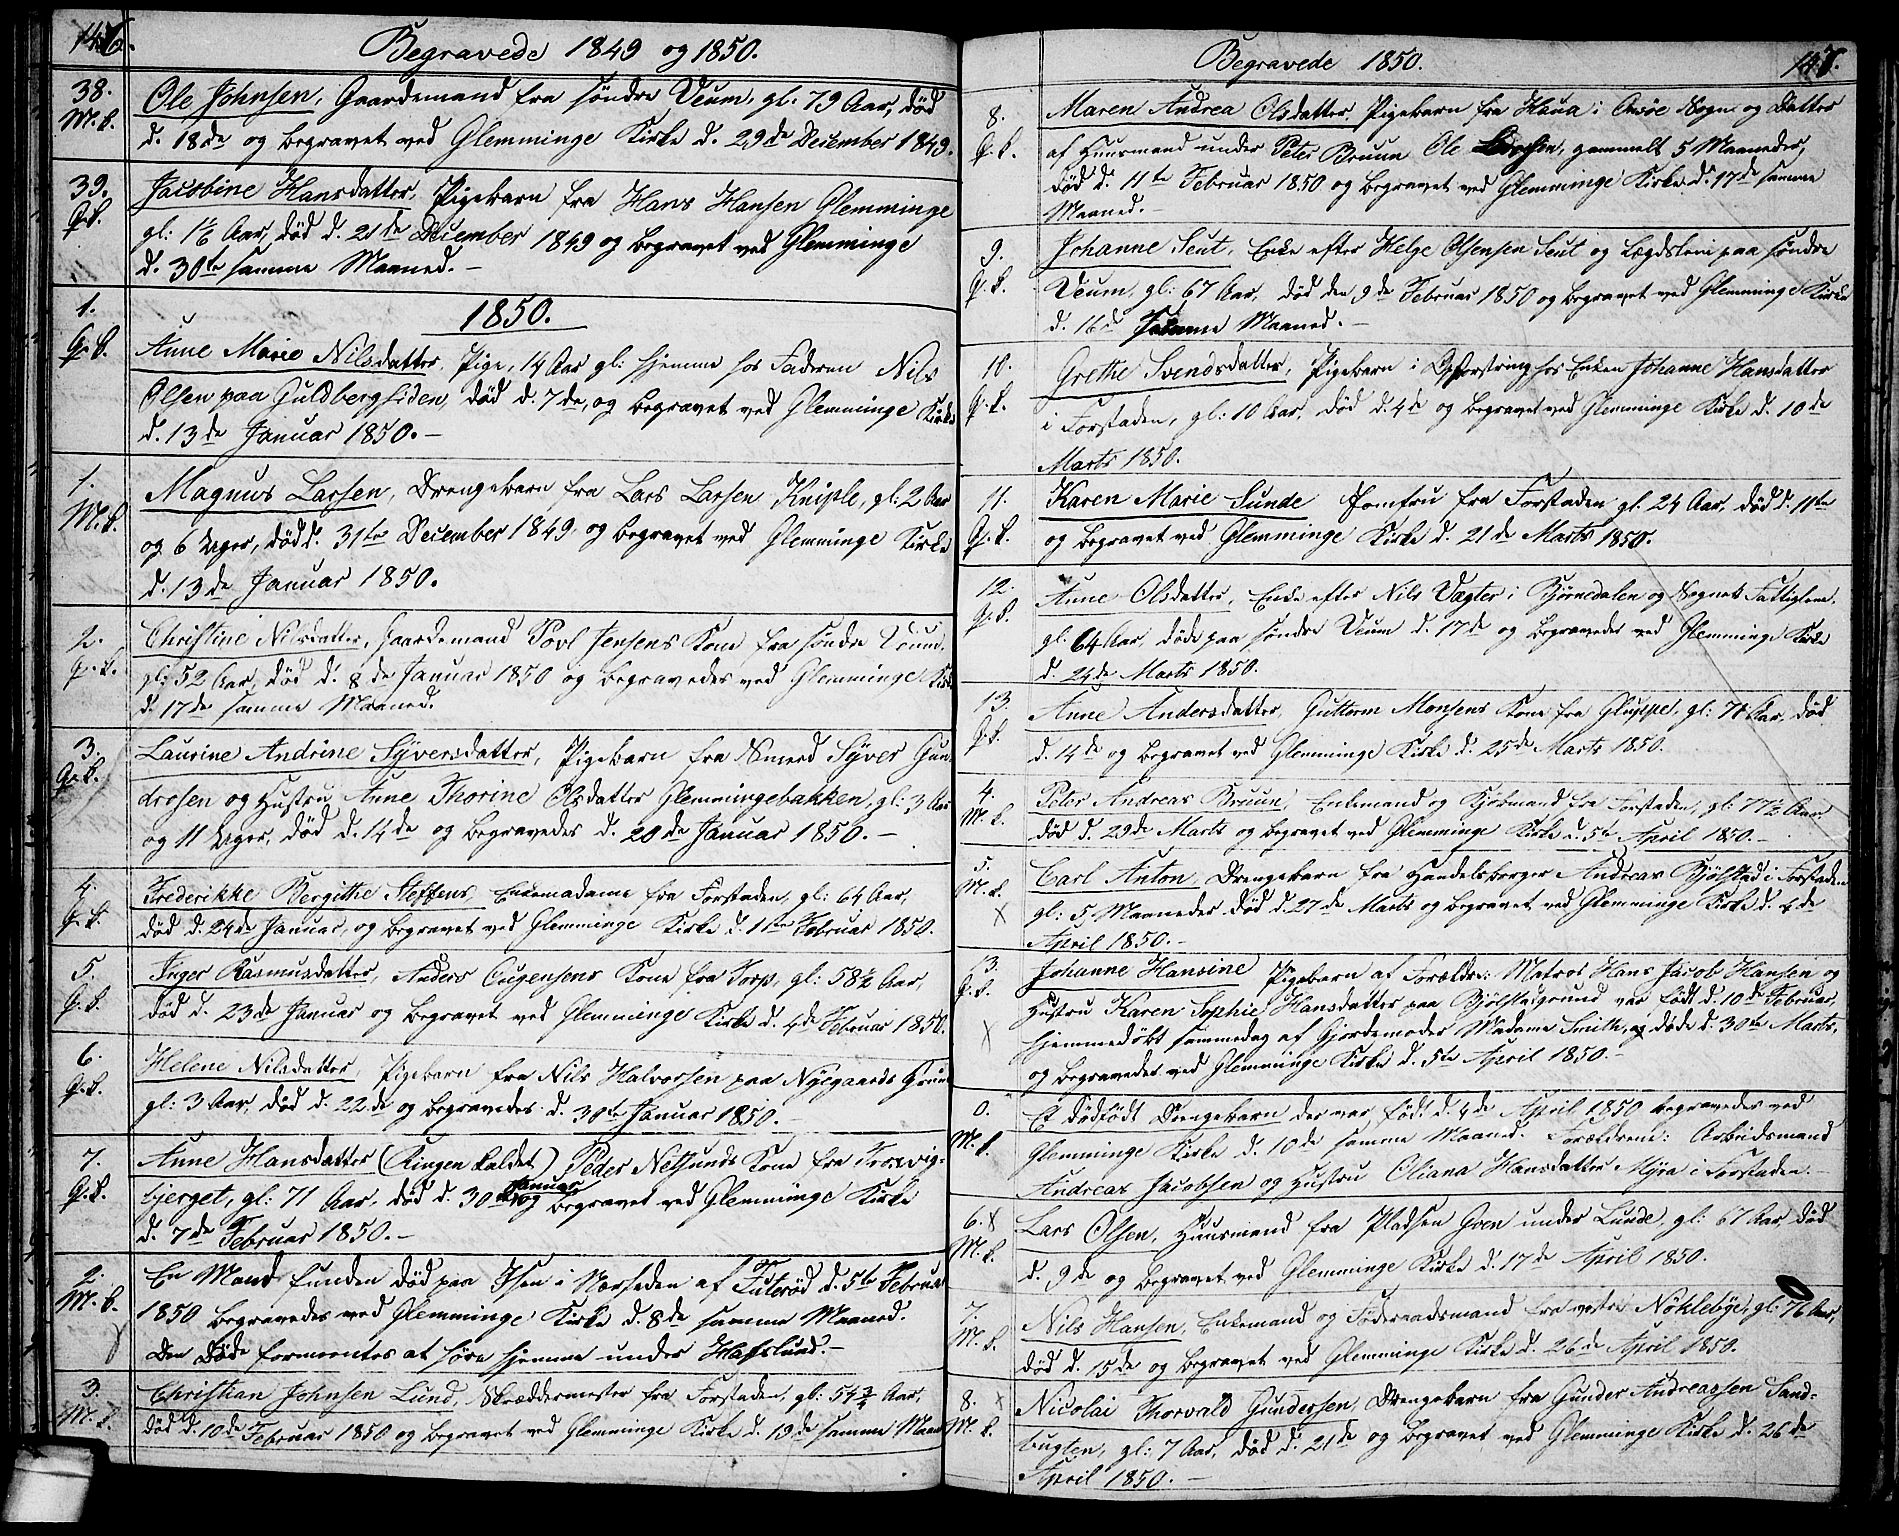 146.
Begravede 1849 og 1850.
38. Ole Johnsen, Gaardemand fra søndre Veum, gl: 79 Aar, død
M.k. d. 18de og begravet ved Glemminge Kirke d. 29de December 1849.
39. Jacobine Hansdatter, Pigebarn fra Hans Hansen Glemminge
Q.k. gl: 1½ Aar, død d. 21de December 1849 og begravet ved Glemminge
d. 30te samme Maaned.-
1. 1850.
Q.k. Anne Marie Nilsdatter, Pige, 14 Aar gl: hjemme hos Faderen Nils
Olsen paa Guldbergsiden, død d. 7de, og begravet ved Glemminge Kirke
d. 13de Januar 1850.-
1. Magnus Larsen, Drengebarn fra Lars Larsen Kniple, gl: 2 Aar
M.k. og 6 Uger, død d. 31te December 1849, og begravet ved Glemminge Kirke
d. 13de Januar 1850.
2. Christine Nilsdatter, Gaardemand Povl Jensens Kone fra søndre Veum,
Q.k. gl: 52 Aar, død d. 8de Januar 1850 og begravedes ved Glemminge Kirke
d. 17de samme Maaned.
3. Laurine Andrine Syversdatter, Pigebarn fra Smed Syver Gun-
Q.k. drosen og Hustru Anne Thorine Olsdatter Glemmingebakken, gl: 3 Aar
og 11 Uger, død d. 14de og begravedes d. 20de Januar 1850.-
4. Frederikke Bergithe Steffens, Enkemadame fra Forstaden, gl: 64 Aar,
Q.k. død d. 24de Januar, og begravet ved Glemminge Kirke d. 1ste Februar 1850.
5. Inger Rasmusdatter, Anders Eugensens Kone fra Torp, gl: 58½ Aar,
Q.k. død d. 23de Januar og begravet ved Glemminge Kirke d. 4de Februar 1850.
6. Helene Nilsdatter, Pigebarn fra Nils Halvorsen paa Nygaards Grund
Q.k. gl: 3 Aar, død d. 22de og begravedes d. 30te Januar 1850.-
7. Anne Hansdatter (Ringen kaldet) Peder Nelsunds Kone fra Trosvig-
Q.k. bjerget, gl: 71 Aar, død d. 30te Januar og begravet ved Glemminge Kirke
d. 7de Februar 1850.-
2. En Mand funden død paa Isen i Nærheden af Tuterød d. 5te Februar
M.k. 1850 begravedes ved Glemminge Kirke d. 8de samme Maaned.
Den Døde formeentes at høre hjemme under Hafslund.-
3. Christian Johnsen Lund, Skreddermester fra Forstaden, gl: 54¾ Aar,
M.k. død d. 10de Februar 1850 og begravet ved Glemminge Kirke d. 19de samme Maaned
Begravede 1850. 147.
8. Maren Andrea Olsdatter, Pigebarn fra Haua i Onsøe Sogn og Datter
Q.k. af Huusmand under Peter Bruun Ole gammelt 5 Maaneder,
død d. 11te Februar 1850 og begravet ved Glemminge Kirke d. 17de samme
Maaned.-
9. Johanne Seut, Enke efter Helge Olsensen Seut og Lægdslem paa søndre
Q.k. Veum, gl: 67 Aar, død den 9de Februar 1850 og begravet ved Glemminge Kirke
d. 16de samme Maaned.-
10. Grethe Svendsdatter, Pigebarn i Opfostring hos Enken Johanne Hansdatter
Q.k. i Forstaden, gl: 10 Aar, død d. 4de og begravet ved Glemminge Kirke d. 10de
Marts 1850.
11. Karen Marie Sunde Jomfru fra Forstaden gl. 24 Aar, død d. 11te
Q.k. og begravet ved Glemminge Kirke d. 21de Marts 1850.
12. Anne Olsdatter, Enke efter Nils Vagter i Bjørnedalen og Sognets Fattiglem,
Q.k. gl: 64 Aar, døde paa søndre Veum d. 17de og begravedes ved Glemminge Kirke
d. 24de Marts 1850.
13. Anne Andersdatter, Guttorm Monsens Kone fra Gluppe, gl: 70 Aar, død
Q.k. d. 14de og begravet ved Glemminge Kirke d. 25de Marts 1850.
4. Peter Andreas Bruun, Enkemand og Kjøbmand fra Forstaden, gl: 77½ Aar
M.k. død d. 29de Marts og begravet ved Glemminge Kirke d. 5te April 1850.-
5. Carl Anton, Drengebarn fra Handelsborger Andreas Bjølstad i Forstaden
M.k. gl: 5 Maaneder død d. 27de Marts og begravet ved Glemminge Kirke d. 4de
X April 1850.-
13. Johanne Hansine Pigebarn af Forældre: Matros Hans Jacob Hansen og
Q.k. Hustru Karen Sophie Hansdatter paa Bjølstadgrund var født d. 10de Februar,
X hjemmedøbt sammedag af Gjordemoder Madame Smith, og døde d. 30te Marts,
og begravedes ved Glemminge Kirke d. 5te April 1850.-
0. Et dødfødt Drengebarn der var født d. 4de April 1850 begravedes ved
M.k. Glemminge Kirke d. 10de samme Maaned. Forældrene: Arbeidsmand
Andreas Jacobsen og Hustru Oliana Hansdatter Myra i Forstaden.-
6. X Lars Olsen, Huusmand fra Pladsen Goen under Lunde, gl: 67 Aar død
M.k. d. 9de og begravet ved Glemminge Kirke d. 17de April 1850.
7. Nils Hansen, Enkemand og Føderaadsmand fra vestre Nøklebye, gl: 76 Aar,
M.k. død d. 15de og begravet ved Glemminge Kirke d. 26de April 1850.
8. X Nicolai Thorvald Gundersen, Drengebarn fra Gunder Andreassen Sand-
M.k. bugten, gl: 7 Aar, død d. 21de og begravet ved Glemminge Kirke d. 26de
April 1850.-